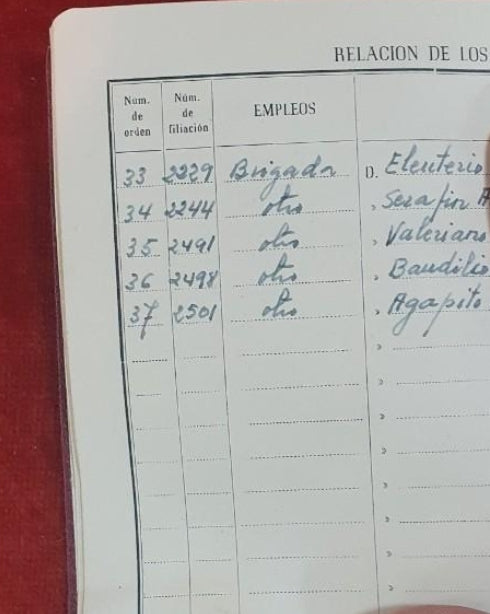 RELACION DE LOS
Núm. de orden Núm. de filiación EMPLEOS
33 2229 Brigada D. Eleuterio
34 2244 otro » Serafin A
35 2491 otro » Valeriano
36 2498 otro » Baudilio
37 2501 otro » Agapito
»
»
»
»
»
»
»
»